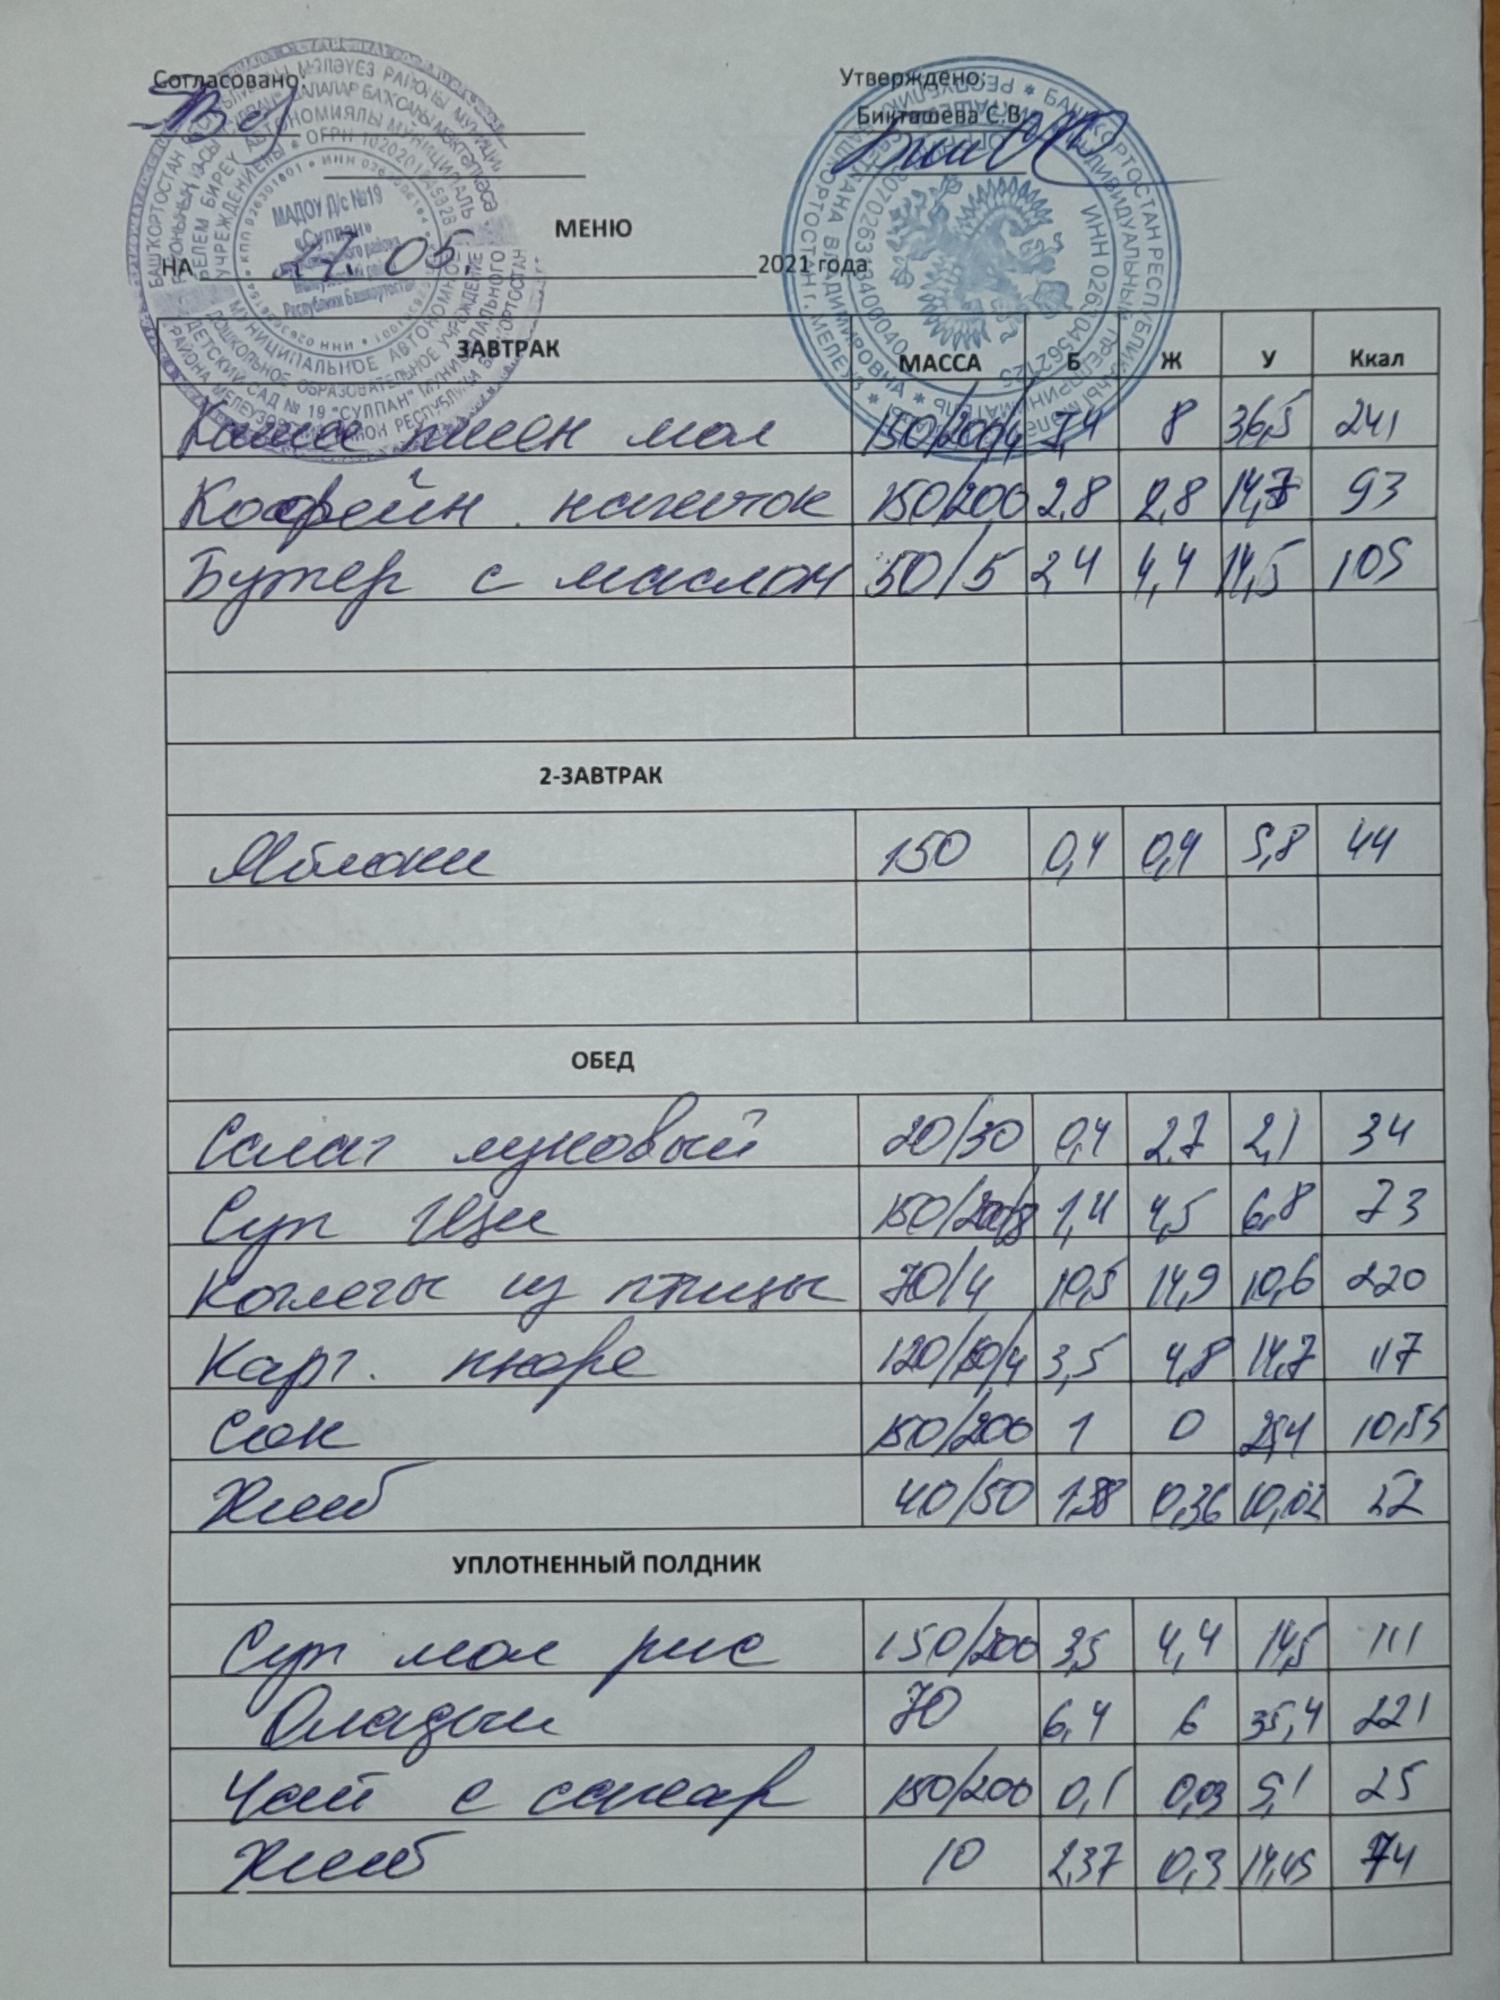 Согласовано:
Утверждено:
Бикташева С.В.
МАДОУ Д/с №19
«Сулпан»
Республики Башкортостан
МЕНЮ
НА 27. 05. 2021 года
ЗАВТРАК МАССА Б Ж У Ккал
Каша пшен мол 150/200/4 7,4 8 36,5 241
Кофейн. напиток 150/200 2,8 2,8 14,7 93
Бутер с маслом 30/5 2,4 4,4 14,5 105
2-ЗАВТРАК
Яблоки 150 0,4 0,4 9,8 44
ОБЕД
Салат луковый 20/30 0,4 2,7 2,1 34
Суп Щи 150/200/8 1,4 4,5 6,8 73
Котлеты из птицы 70/4 10,5 14,9 10,6 220
Карт. пюре 120/150/4 3,5 4,8 14,7 117
Сок 150/200 1 0 25,4 10,55
Хлеб 40/50 1,38 0,36 10,02 52
УПЛОТНЕННЫЙ ПОЛДНИК
Суп мол рис 150/200 3,5 4,4 14,5 111
Оладьи 70 6,4 6 35,4 221
Чай с сахар 150/200 0,1 0,03 5,1 25
Хлеб 10 2,37 0,3 14,45 74